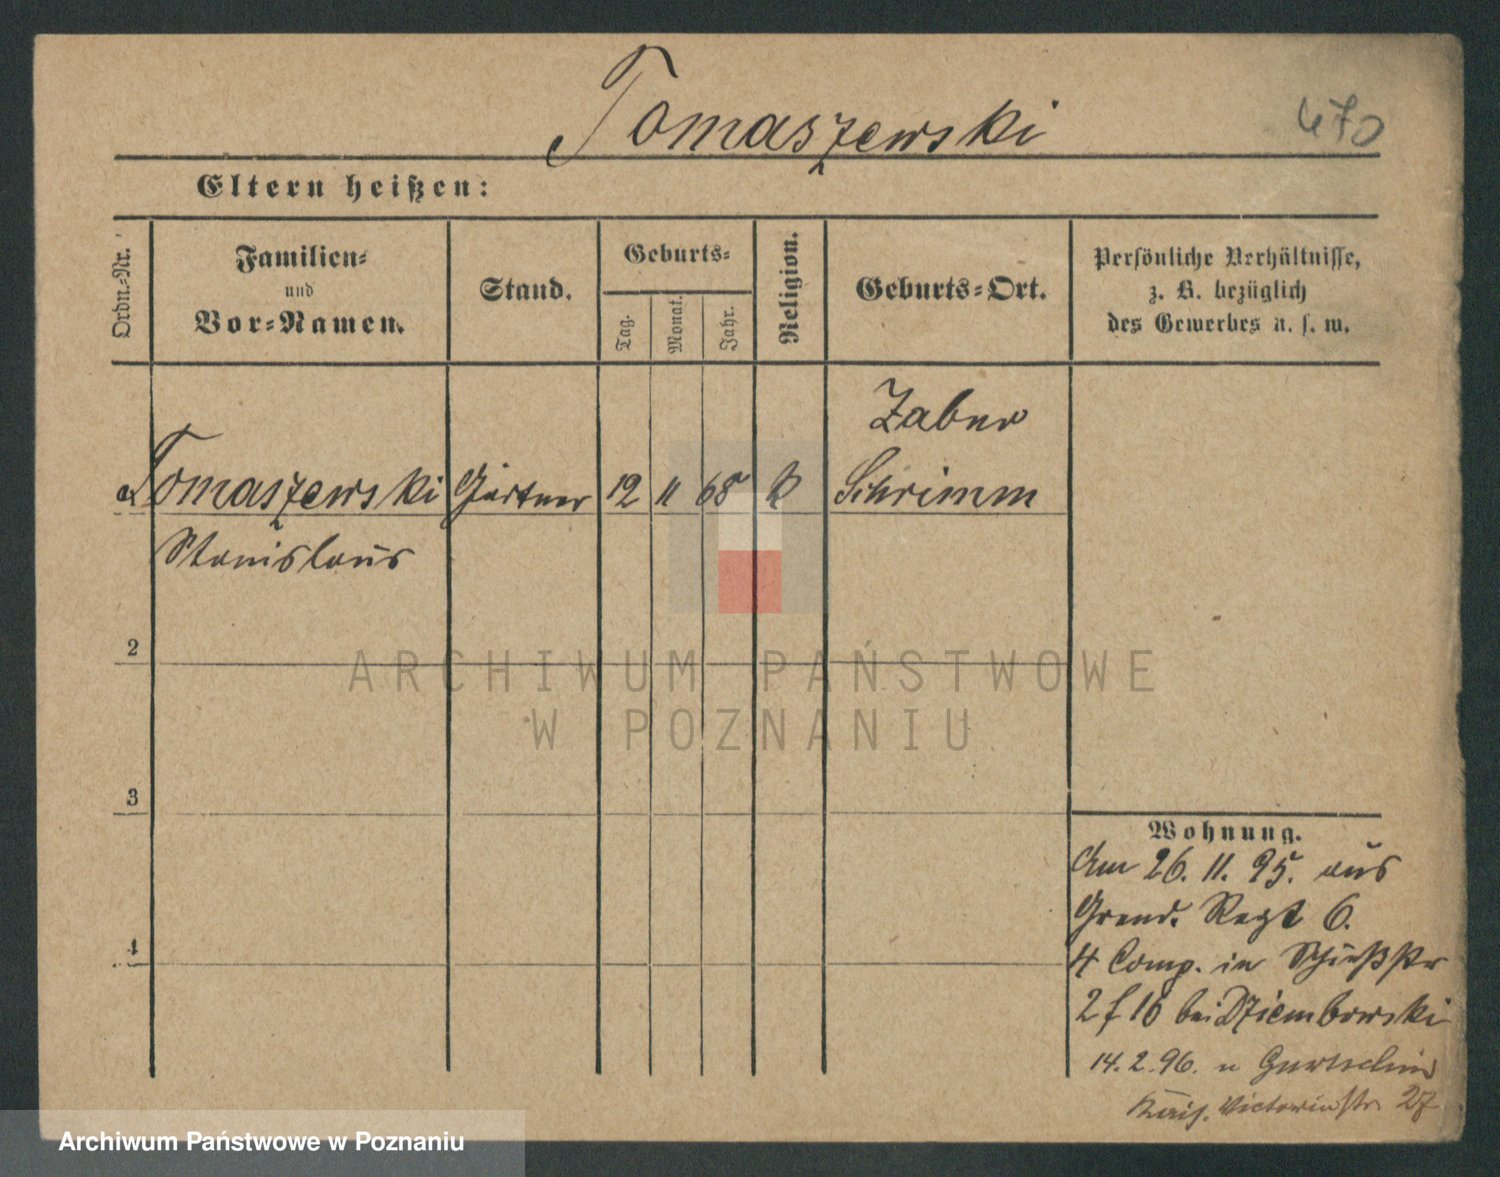 Tomaszewski
470
Eltern heißen:
Ordn.-Nr.
Familien-
und
Vor-Namen.
Stand.
Geburts-
Tag.
Monat.
Jahr.
Religion.
Geburts-Ort.
Persönliche Verhältnisse,
z. B. bezüglich
des Gewerbes u. s. w.
Tomaszewski Gärtner 12 11 68 k Schrimm
Zabno
Stanislaus
2
3
4
ARCHIWUM PAŃSTWOWE
W POZNANIU
Wohnung.
Am 26. 11. 95. aus
Grend. Regt 6.
4 Comp. in Schießstr
2 f 16 bei Dziembowski
14. 2. 96. n Gurtschin
Victoriastr. 27
Archiwum Państwowe w Poznaniu